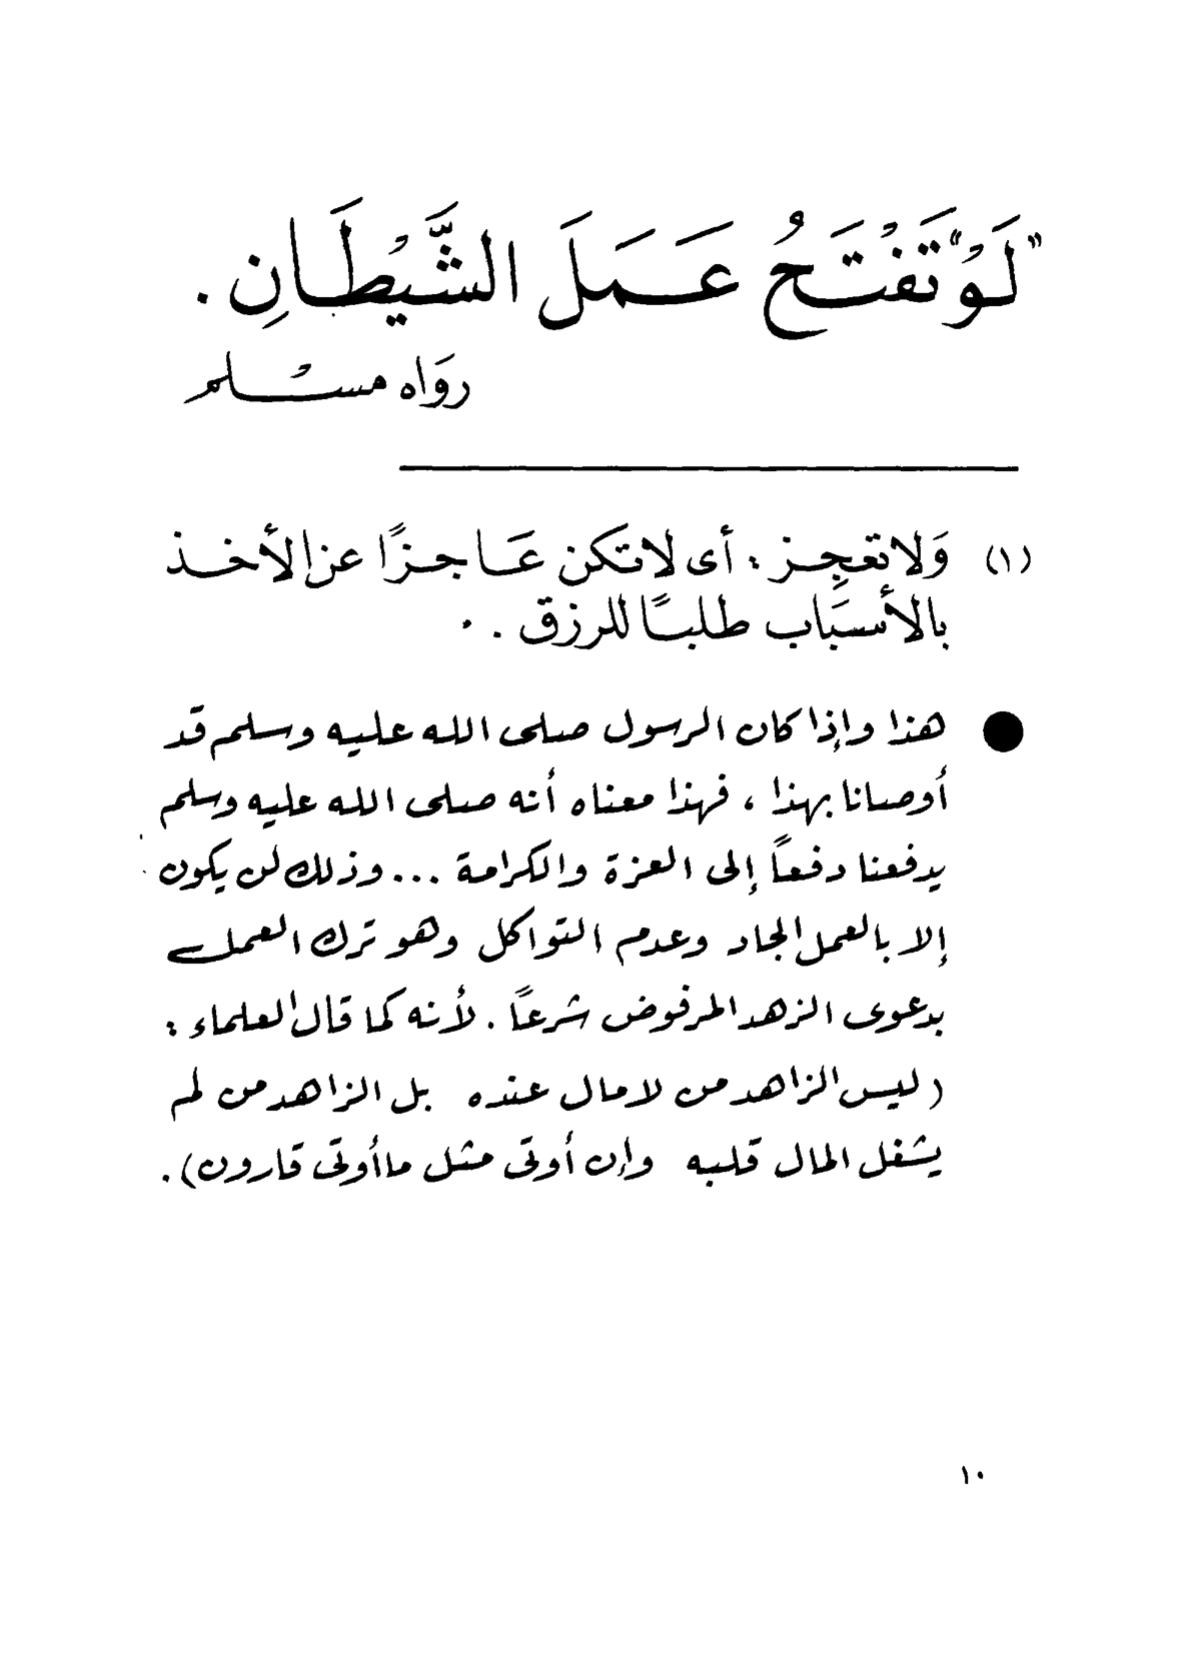 "لَوْ" تَفْتَحُ عَمَلَ الشَّيْطَانِ .
رَوَاه مسْلم
(١) وَلا تعجِز : أى لا تكن عَاجزًا عن الأخذ
بالأسبَاب طلبًا للرزق . .
● هذا وإذا كان الرسول صلى الله عليه وسلم قد
أوصانا بهذا ، فهذا معناه أنه صلى الله عليه وسلم
يدفعنا دفعاً إلى العزة والكرامة ... وذلك لن يكون
إلا بالعمل الجاد وعدم التواكل وهو ترك العمل
بدعوى الزهد المرفوض شرعاً . لأنه كما قال العلماء :
( ليس الزاهد من لا مال عنده بل الزاهد من لم
يشغل المال قلبه وإن أوتى مثل ما أوتى قارون ) .
١٠